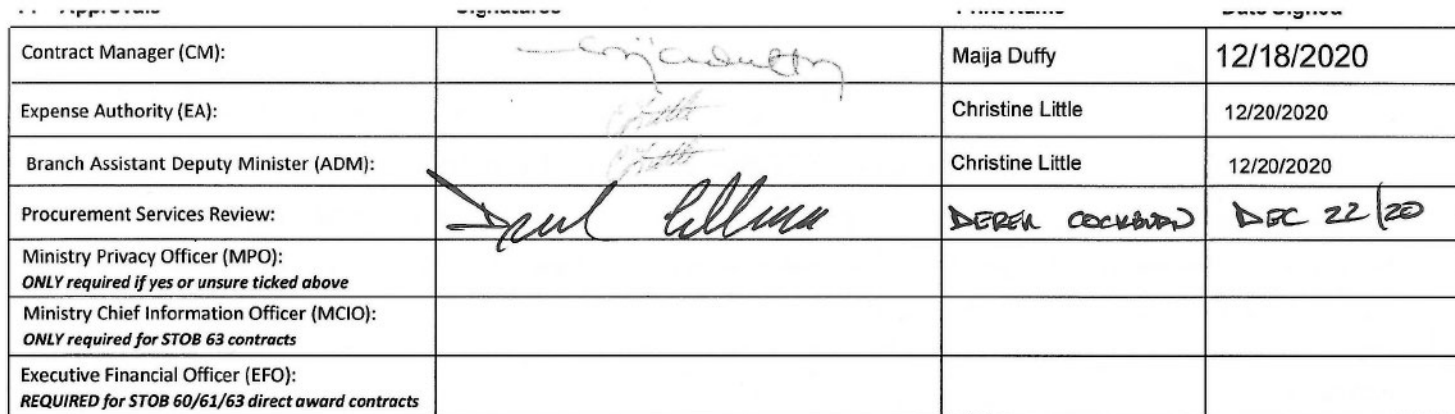 Contract Manager (CM): Maija Duffy 12/18/2020
Expense Authority (EA): Christine Little 12/20/2020
Branch Assistant Deputy Minister (ADM): Christine Little 12/20/2020
Procurement Services Review: DEREK DEC 22/20
Ministry Privacy Officer (MPO):
ONLY required if yes or unsure ticked above
Ministry Chief Information Officer (MCIO):
ONLY required for STOB 63 contracts
Executive Financial Officer (EFO):
REQUIRED for STOB 60/61/63 direct award contracts